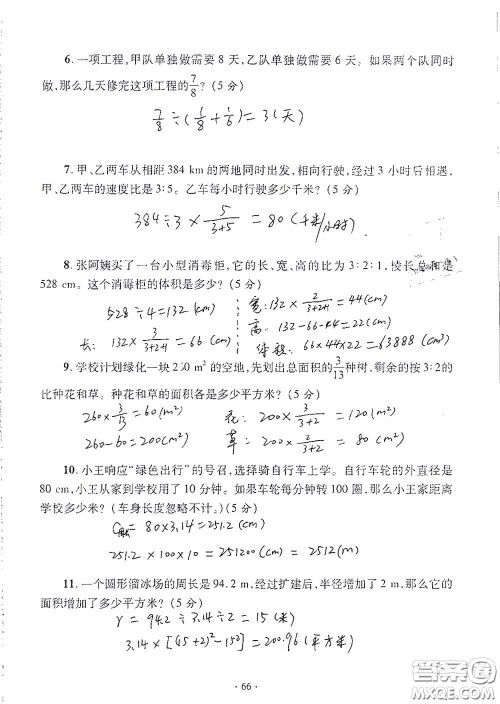 6. 一项工程,甲队单独做需要 8 天,乙队单独做需要 6 天。如果两个队同时
做,那么几天修完这项工程的7/8?(5 分)
7/8÷(1/8+1/6)=3(天)
7. 甲、乙两车从相距 384 km 的两地同时出发,相向行驶,经过 3 小时后相遇,
甲、乙两车的速度比是 3∶5。乙车每小时行驶多少千米?(5 分)
384÷3×5/(3+5)=80(千米/小时)
8. 张阿姨买了一台小型消毒柜,它的长、宽、高的比为 3∶2∶1,棱长总和是
528 cm。这个消毒柜的体积是多少?(5 分)
528÷4=132(cm)
长:132×3/(3+2+1)=66(cm)
宽:132×2/(3+2+1)=44(cm)
高:132-66-44=22(cm)
体积:66×44×22=63888(cm³)
9. 学校计划绿化一块 260 m² 的空地,先划出总面积的3/13种树,剩余的按 3∶2 的
比种花和草。种花和草的面积各是多少平方米?(5 分)
260×3/13=60(m²) 花:200×3/(3+2)=120(m²)
260-60=200(cm²) 草:200×2/(3+2)=80(m²)
10. 小王响应“绿色出行”的号召,选择骑自行车上学。自行车轮的外直径是
80 cm,小王从家到学校用了 10 分钟。如果车轮每分钟转 100 圈,那么小王家距离
学校多少米?(车身长度忽略不计。)(5 分)
80×3.14=251.2(cm)
251.2×100×10=251200(cm)=2512(m)
11. 一个圆形溜冰场的周长是 94.2 m,经过扩建后,半径增加了 2 m,那么它的
面积增加了多少平方米?(5 分)
r=94.2÷3.14÷2=15(米)
3.14×[(15+2)²-15²]=200.96(平方米)
· 66 ·
答案圈
MXQE.COM